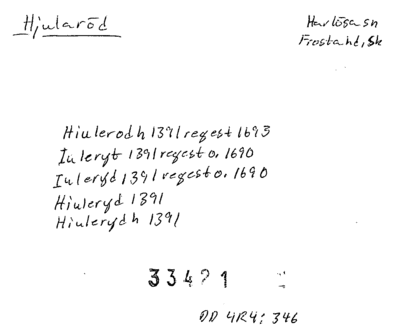 Hjularöd
Harlösa sn
Frosta hd, Sk
Hiulerodh 1391 regest 1693
Iuleryt 1391 regest o. 1690
Iuleryd 1391 regest o. 1690
Hiuleryd 1391
Hiulerydh 1391
334?1
DD 4R4: 346